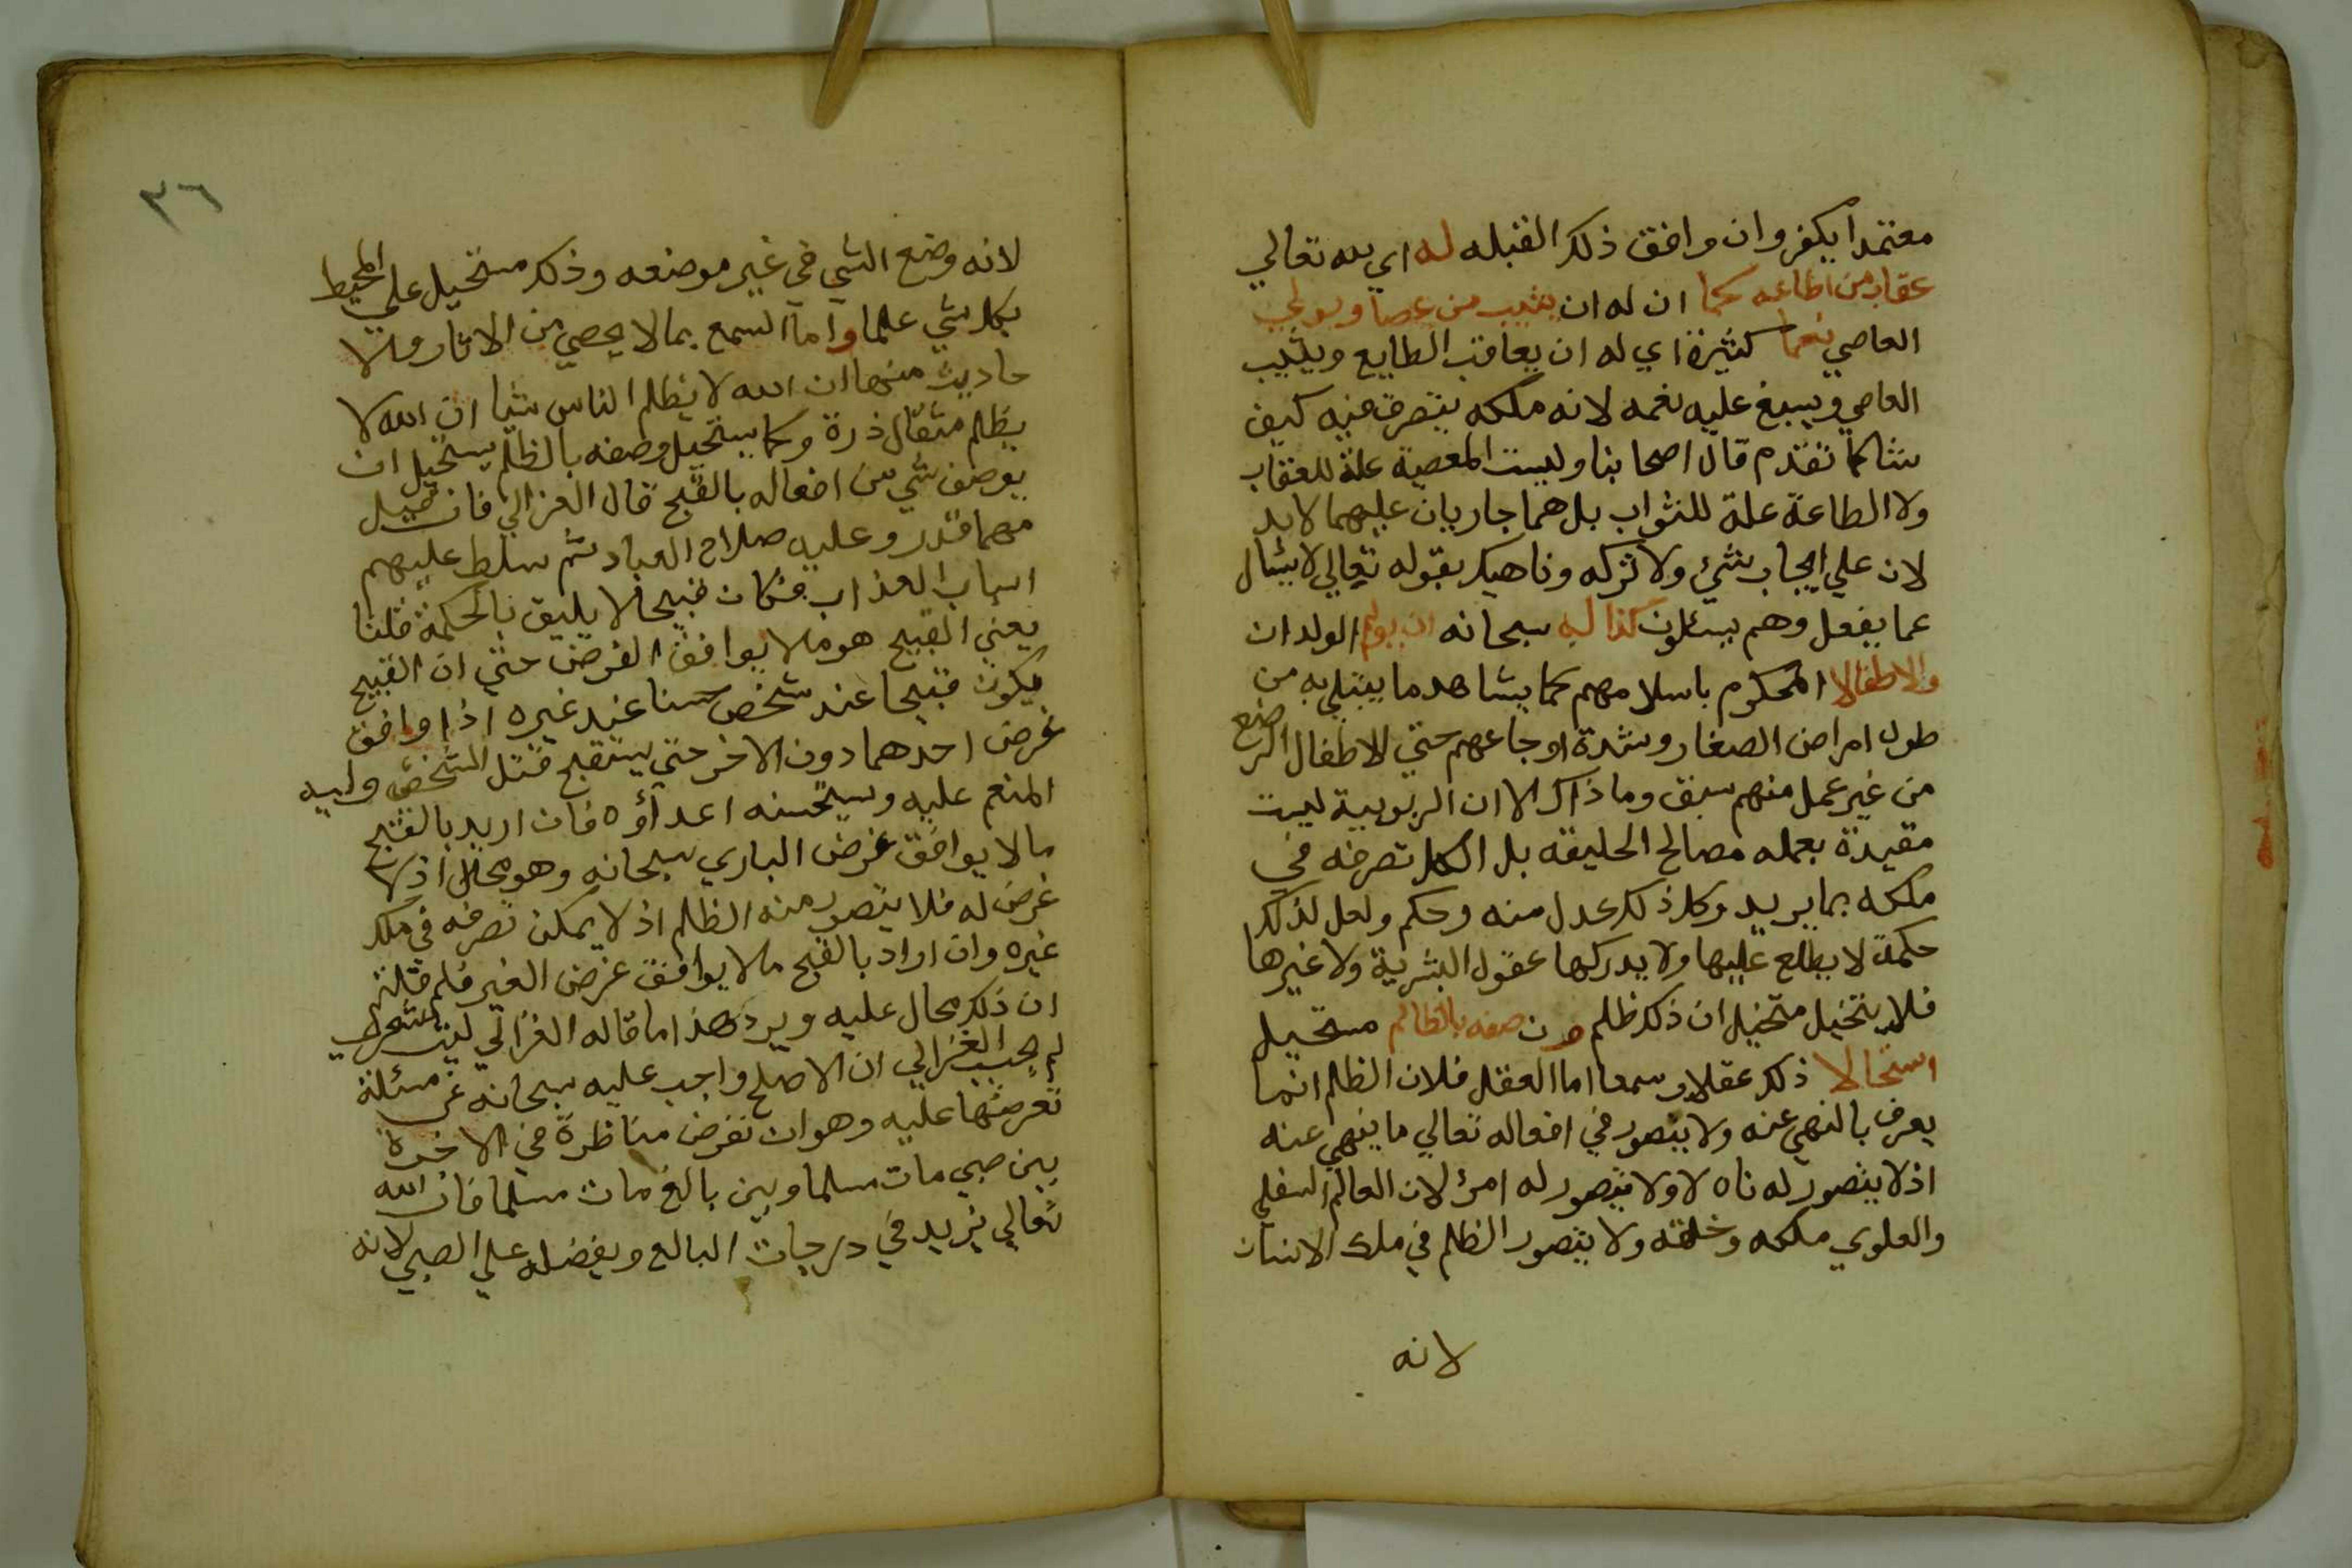 معتمدا يكفر وان وافق ذلك القبله له اي لله تعالي
عقاب من اطاعه كما ان له ان يثيب من عصا ويولي
العاصي نعما كثيرة اي له ان يعاقب الطايع ويثيب
العاصي ويسبغ عليه نعمه لانه ملكه يتصرف فيه كيف
شا كما تقدم قال اصحابنا وليست المعصية علة للعقاب
ولا الطاعة علة للثواب بل هما جاريان عليهما لا يد
لان علي ايجاب شئ ولا تركه وناهيك بقوله تعالي لا يسئال
عما يفعل وهم يسئلون كذا له سبحانه ان يولم الولدان
والاطفالا المحكوم باسلامهم كما يشاهد ما يبتلي به من
طول امراض الصغار وشدة اوجاعهم حتي للاطفال الرضع
من غير عمل منهم سبق وما ذاك الا ان الربوبية ليست
مقيدة بعمله مصالح الخليقه بل الكل تصرفه في
ملكه بما يريد وكل ذلك عدل منه وحكم ولعل لذلك
حكمة لا يطلع عليها ولا يدركها عقول البشرية ولا غيرها
فلا يتخيل متخيل ان ذلك ظلم ون صفه بالظالم مستحيل
استحالا ذلك عقلا وسمعا اما العقل فلان الظلم انما
يعرف بالنهي عنه ولا يتصور في افعاله تعالي ما ينهي عنه
اذ لا يتصور له ناه لا ولا يتصور له امر لان العالم السفلي
والعلوي ملكه وخلقه ولا يتصور الظلم في ملك الانسان
لانه
٣٦
لانه وضع الشي في غير موضعه وذلك مستحيل علي المحيط
بكل شي علما واما السمع بما لا يحصي من الاثار والا
حاديث منها ان الله لا يظلم الناس شيا ان الله لا
يظلم مثقال ذرة وكما يستحيل وصفه بالظلم يستحيل ان
يوصف شي من افعاله بالقبح قال الغزالي فان قيل
مهما قدر وعليه صلاح العباد ثم سلط عليهم
اسباب العذاب فكان قبيحا لا يليق بالحكمة قلنا
يعني القبيح هو ما لا يوافق الغرض حتي ان القبيح
يكون قبيحا عند شخص حسنا عند غيره اذا وافق
غرض احدهما دون الاخر حتي يستقبح قتل الشخص وليه
المنعم عليه ويستحسنه اعداؤه فان اريد بالقبح
ما لا يوافق غرض الباري سبحانه وهو محال اذ لا
غرض له فلا يتصور منه الظلم اذ لا يمكن تصرفه في ملك
غيره وان اراد بالقبح ما لا يوافق غرض الغير فلم قلتم
ان ذلك محال عليه ويرد هذا ما قاله الغزالي ليت شعري
لم يجب الغزالي ان الاصلح واجب عليه سبحانه عن مسئلة
نعرضها عليه وهو ان نفرض مناظرة في الاخرة
بين صبي مات مسلما وبين بالغ مات مسلما فان الله
تعالي يزيد في درجات البالغ ويفضله علي الصبي لانه